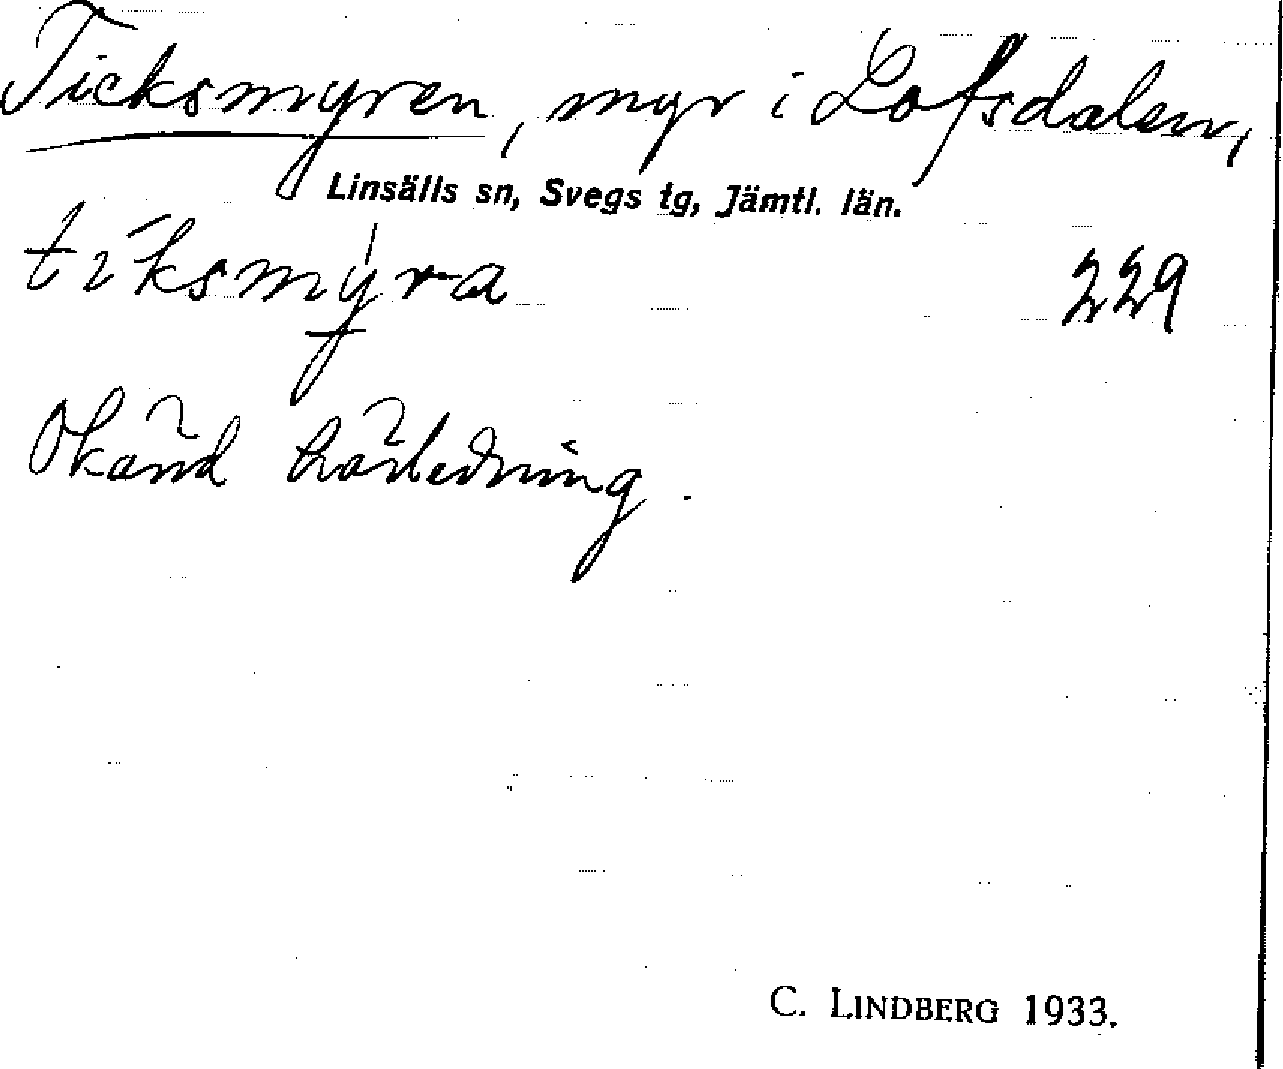 Ticksmyren, myr i Lofsdalen,
Linsälls sn, Svegs tg, Jämtl. län.
tìksmy̍ra 229
Okänd härledning.
C. LINDBERG 1933.